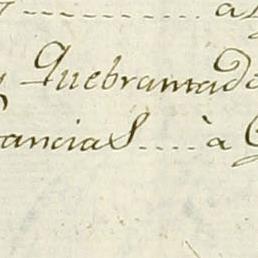 y Quebrantado
ancias .... à